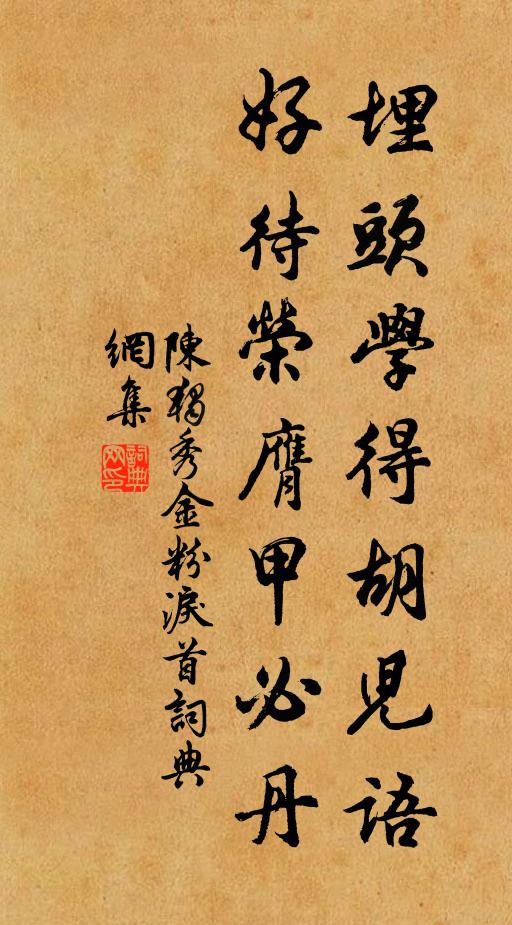 埋頭學得胡兒語
好待榮膺甲必丹
陳獨秀金粉淚首詞典
網集
詞典
网印